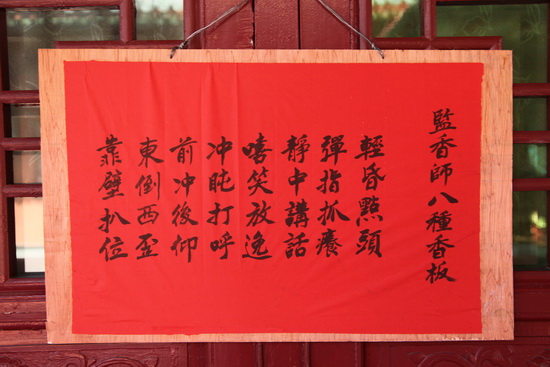 監香師八種香板
輕昏點頭
彈指抓癢
靜中講話
嘻笑放逸
冲盹打呼
前冲後仰
東倒西歪
靠壁扒位